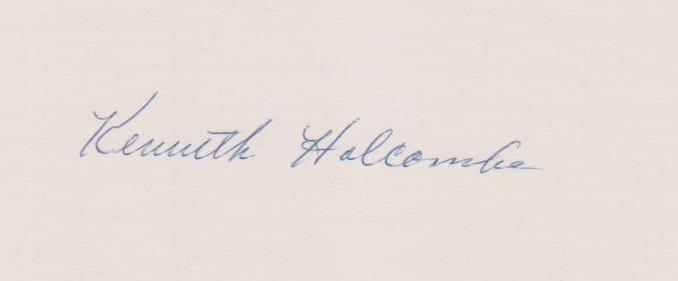 Kenneth Holcombe